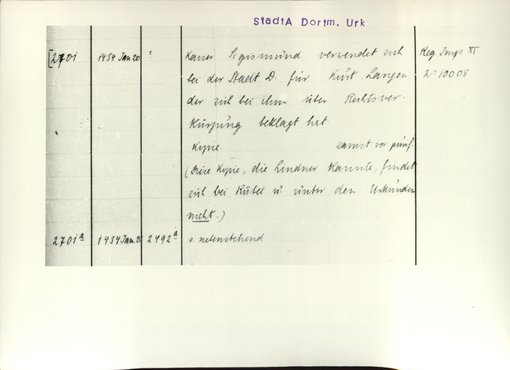 StadtA Dortm. Urk
[2701 1434 Jan 20 " Kaiser Sigismund verwendet sich Reg. Imp. XI
bei der Stadt D. für Kurt Langen Nr 10008
der sich bei ihm über Rechtsver-
kürzung beklagt hat
Kopie. samst vor
(Diese Kopie, die Lindner kannte, findet
sich bei Rübel u. unter den Urkunden
nicht.)
2701a 1434 Jan 20 2492a s. nebenstehend